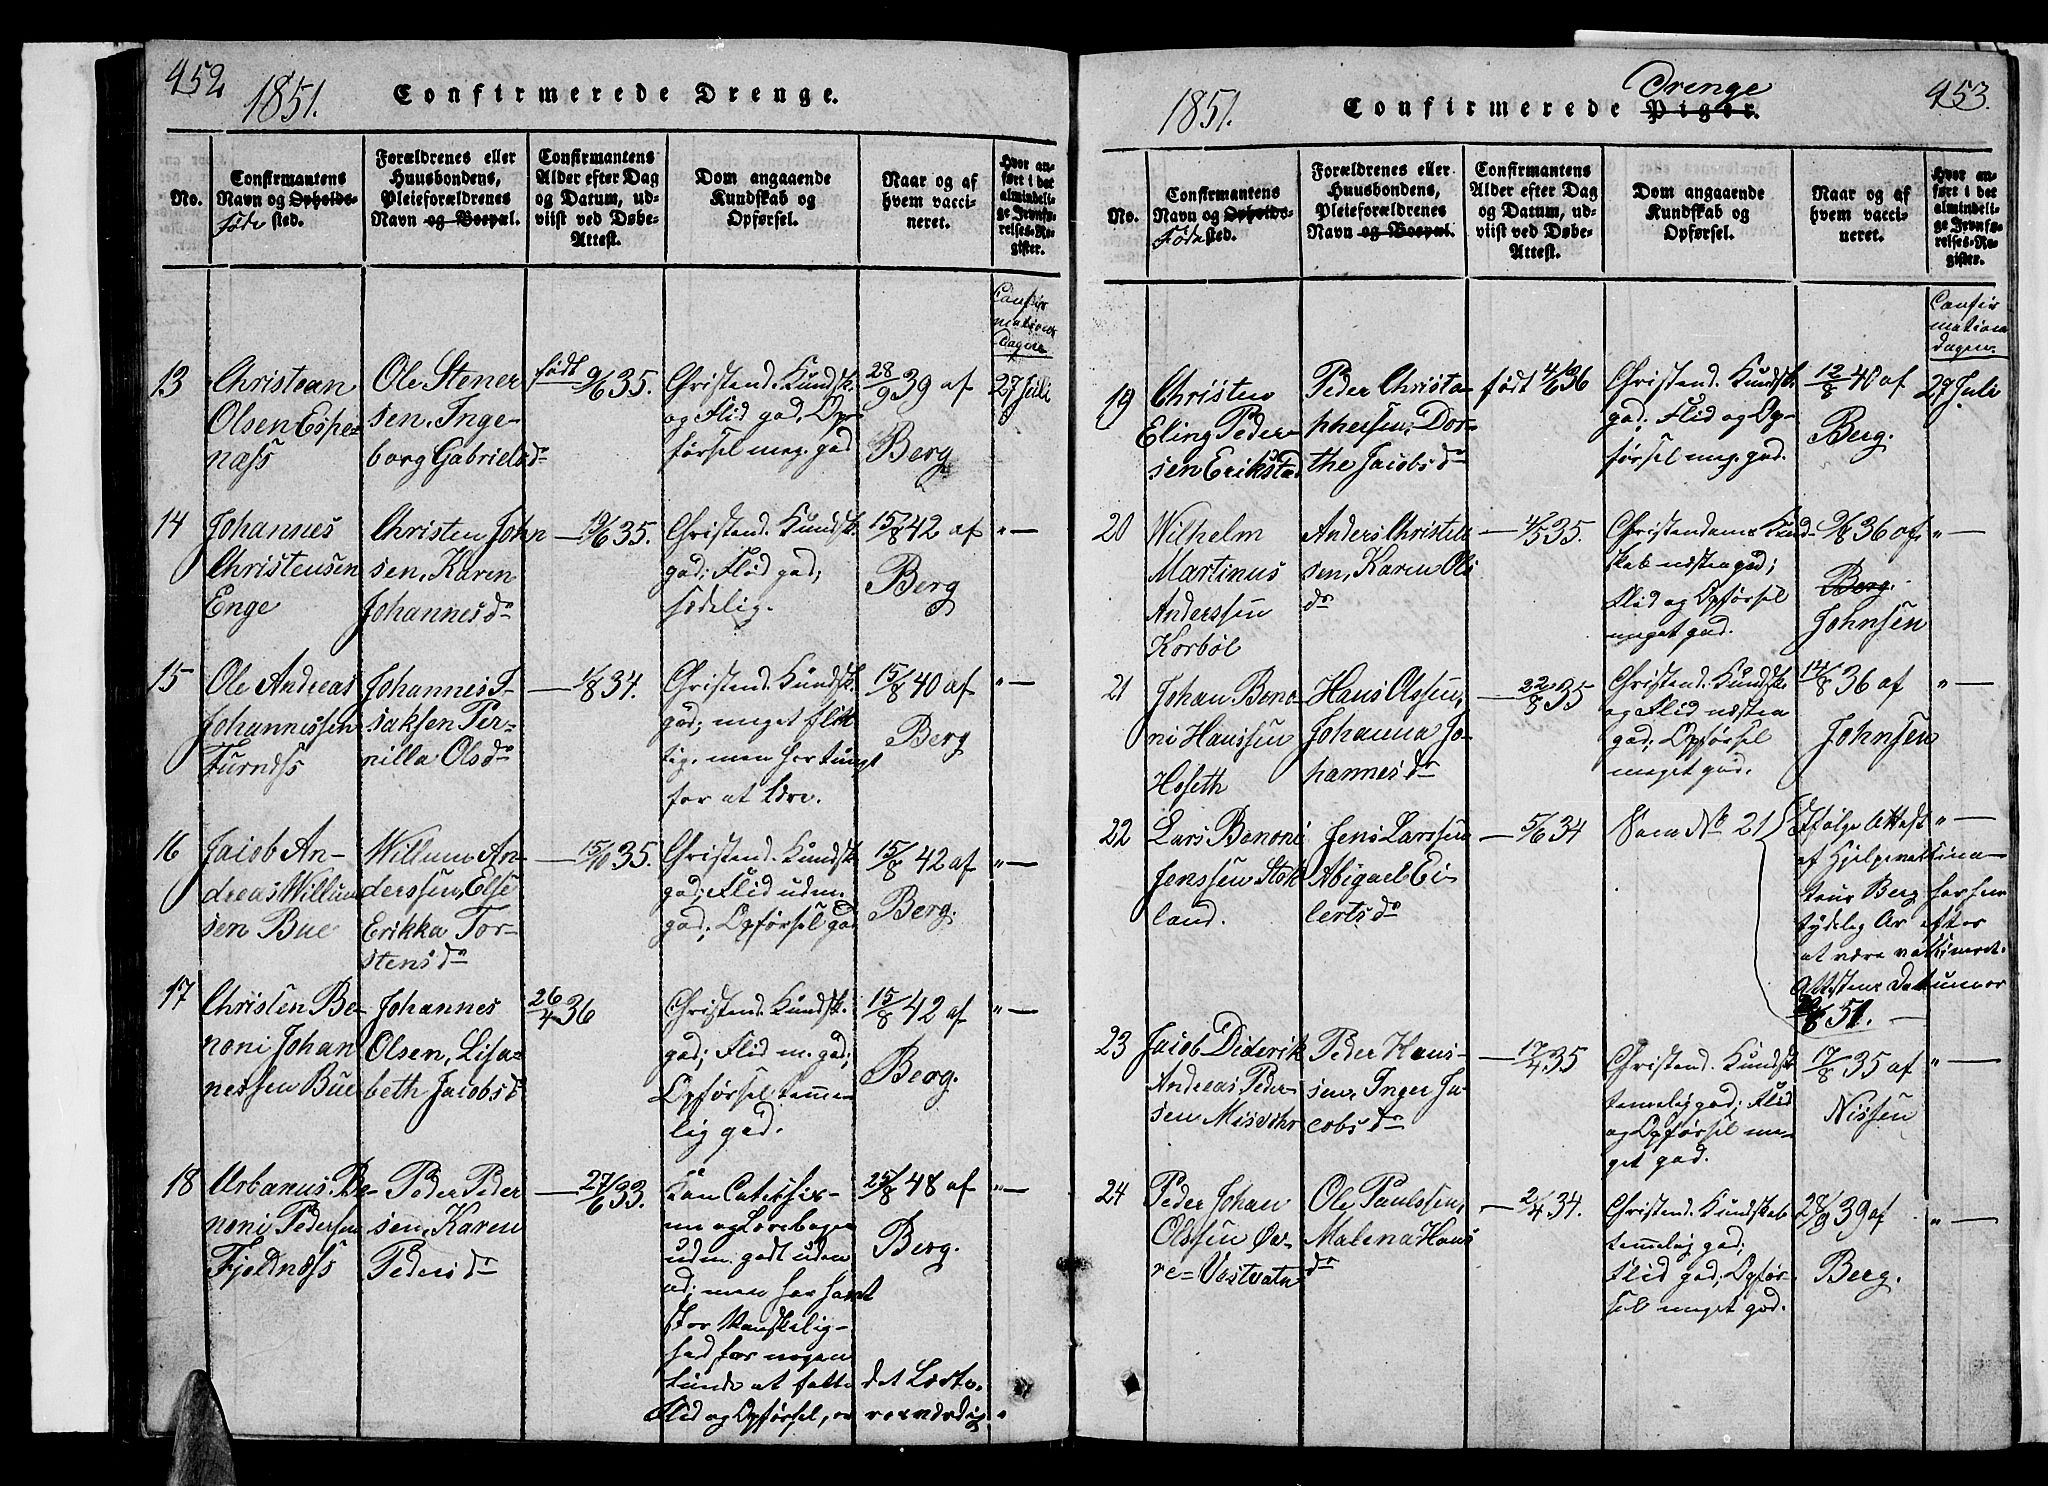 452
1851.
Confirmerede Drenge.
No.
Confirmantens
Navn og Opholds-
Føde sted.
Forældrenes eller
Huusbondens,
Pleieforældrenes
Navn og Bopæl.
Confirmantens
Alder efter Dag
og Datum, ud-
viist ved Døbe-
Attest.
Dom angaaende
Kundskab og
Opførsel.
Naar og af
hvem vacci-
neret.
Hvor an-
ført i det
almindeli-
ge Jevnfø-
relses-Re-
gister.
Confir
mations
Dagen
13
Christian
Olsen Espe-
næss
Ole Stener
sen, Inge-
borg Gabrielsdr
født 9/6 35.
Christend. Kundsk.
og Flid god, Op-
førsel meg. god
28/9 39 af
Berg
27 Juli
14
Johannes
Christensen
Enge
Christen John
sen, Karen
Johannesdr
— 19/6 35.
Christend. Kundsk.
god; Flid god;
sædelig.
15/8 42 af
Berg
" —
15
Ole Andreas
Johannessen
Furnæss
Johannes I-
saksen Per-
nilla Olsdr
— 1/8 34.
Christend. Kundsk.
god; meget flit
tig, men har tungt
for at lære.
15/8 40 af
Berg
" —
16
Jacob An-
dreas Willum
sen Bue
Willum An-
derssen, Else
Erikka Tor-
stensdr
— 15/10 35.
Christend. Kundsk.
god; Flid udm.
god; Opførsel god
15/8 42 af
Berg.
" —
17
Christen Be-
noni Johan
nessen Bue
Johannes
Olsen, Lisa-
beth Jacobsdr
26/4 36
Christend. Kundsk.
god; Flid m. god;
Opførsel temme
lig god.
15/8 42 af
Berg.
" —
18
Urbanus Be-
noni Pedersen
Fjeldnæss
Peder Peder
sen, Karen
Pedersdr
— 27/6 33.
Kan Catechis-
me og Lærebogen
udm. godt uden
ad; men har havt
stor Vanskelig-
hed for nogen
lunde at fatte det Læste.
Flid og Opførsel,
25/8 48 af
Berg.
" —
453.
1851.
Confirmerede Piger.
Drenge
No.
Confirmantens
Navn og Opholds-
Føde sted.
Forældrenes eller
Huusbondens,
Pleieforældrenes
Navn og Bopæl.
Confirmantens
Alder efter Dag
og Datum, ud-
viist ved Døbe-
Attest.
Dom angaaende
Kundskab og
Opførsel.
Naar og af
hvem vacci-
neret.
Hvor an-
ført i det
almindeli-
ge Jevnfø-
relses-Re-
gister.
Confir
mations
dagen.
19
Christen
Eling Peder-
sen Erikstad
Peder Christo-
phersen, Dor-
the Jacobsdr
født 36
Christend. Kundsk.
god; Flid og Op-
førsel meg. god.
12/8 40 af
Berg.
27 Juli
20
Wilhelm
Martinus
Anderssen
Korbøl
Anders Christen
sen, Karen Ols
dr
— 4/5 35.
Christendoms Kund-
skab næsten god;
Flid og Opførsel
meget god.
9/8 36 af
Berg.
Johnsen
" —
21
Johan Beno
ni Hanssen
Hoseth
Hans Olssen,
Johanna Jo-
hannesdr
— 22/8 35
Christend. Kundsk.
og Flid næsten
god; Opførsel
meget god.
14/8 36 af
Johnsen
" —
22
Lars Benoni
Jenssen Stok
land.
Jens Larssen
Abigael Ei-
lertsdr
— 5/6 34
Som No 21
Ifølge Attest
af Hjelpevaccina-
teur Berg har han
tydelig Ar efter
at være vaccineret.
Attestens Datum er
51. —
" —
23
Jacob Diderik
Andreas Peder-
sen Misvær
Peder Hans-
sen, Inger Ja-
cobsdr
— 17/4 35
Christend. Kundsk.
temmelig god; Flid
og Opførsel me-
get god.
17/8 35 af
Nissen
" —
24
Peder Johan
Olssen Øv-
re=Vestvatn
Ole Paulssen,
Malena Hans
dr
— 2/4 34.
Christend. Kundskab
temmelig god;
Flid god; Opfør-
sel meget god.
28/9 39 af
Berg.
" —